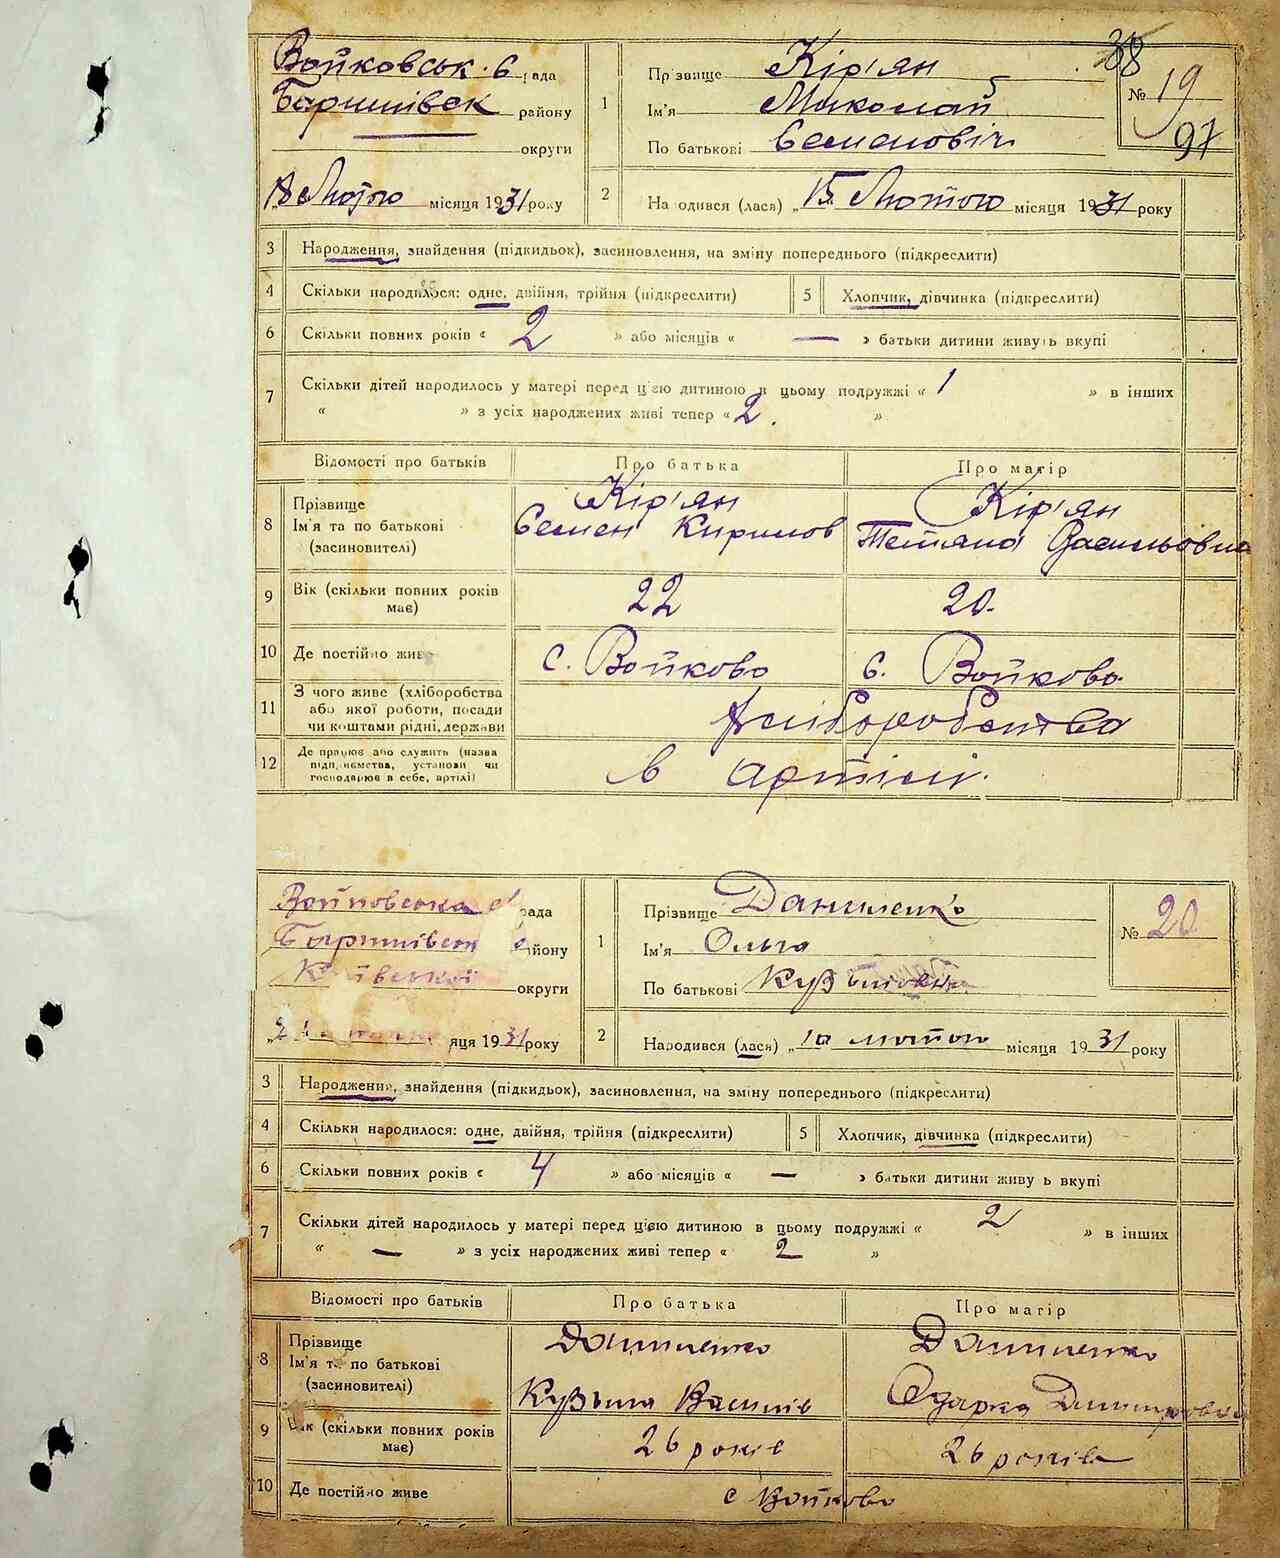 38
97
Войковськ. с. рада
Баришівськ району
округи
„18 Лютого місяця 1931 року
1
Прізвище Кір'ян
Ім'я Миколай
По батькові Семенович
№ 19
2
Народився (лася) „15 Лютого місяця 1931 року
3 Народження, знайдення (підкидьок), засиновлення, на зміну попереднього (підкреслити)
4 Скільки народилося: одне, двійня, трійня (підкреслити) 5 Хлопчик, дівчинка (підкреслити)
6 Скільки повних років « 2 » або місяців « — » батьки дитини живуть вкупі
7 Скільки дітей народилось у матері перед цією дитиною в цьому подружжі « 1 » в інших
« » з усіх народжених живі тепер « 2. »
Відомості про батьків Про батька Про матір
8 Прізвище Кір'ян Кір'ян
Ім'я та по батькові Семен Кирилов Тетяна Васильовна
(засиновителі)
9 Вік (скільки повних років має) 22 20.
10 Де постійно живе с. Войково с. Войково.
11 З чого живе (хліборобства
або якої роботи, посади
чи коштами рідні, держави
Хліборобства
12 Де працює або служить (назва
підприємства, установи чи
господарює в себе, артілі)
в артілі.
Войковська с рада
Баришівськ району
Київської округи
місяця 1931 року
1
Прізвище Даниленко
Ім'я Ольга
По батькові Кузьмовна
№ 20
2
Народився (лася) „10 лютого місяця 1931 року
3 Народження, знайдення (підкидьок), засиновлення, на зміну попереднього (підкреслити)
4 Скільки народилося: одне, двійня, трійня (підкреслити) 5 Хлопчик, дівчинка (підкреслити)
6 Скільки повних років « 4 » або місяців « — » батьки дитини живуть вкупі
7 Скільки дітей народилось у матері перед цією дитиною в цьому подружжі « 2 » в інших
« — » з усіх народжених живі тепер « 2 »
Відомості про батьків Про батька Про матір
8 Прізвище Даниленко Даниленко
Ім'я та по батькові
(засиновителі) Кузьма Василів Одарка Дмитровна
9 Вік (скільки повних років має) 26 років 26 років
10 Де постійно живе с Войково